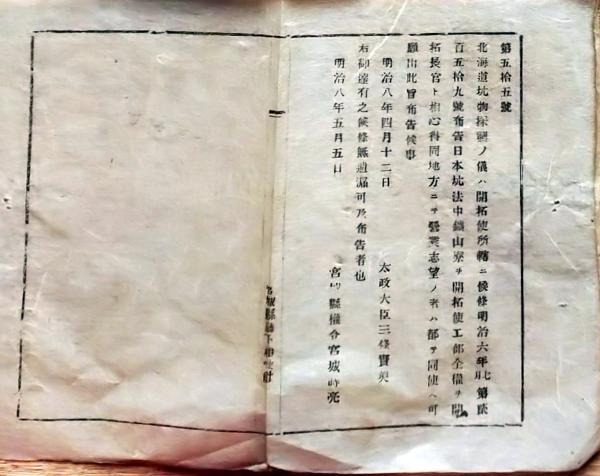 第五拾五號
北海道坑物採掘ノ儀ハ開拓使所轄ニ候條明治六年 第
百五拾九號布告日本坑法中鑛山寮ヲ開拓使工部全備ヲ開
拓長官ト相心得同地方ニテ營業志望ノ者ハ都テ同使ヘ可
願出此旨布告候事
明治八年四月十二日
太政大臣三條實美
右御達有之候條無遺漏可及布告者也
明治八年五月五日
宮城縣權令宮城時亮
宮城縣